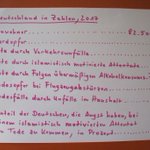 Deutschland in Zahlen, 2017
wohner 82.5
rdopfer
te durch Verkehrsunfälle
te durch islamistisch motivierte Attentate
te durch Folgen übermäßigen Alkoholkonsums
desopfer bei Flugzeugabstürzen
desfälle durch Unfälle im Haushalt
nteil der Deutschen, die Angst haben, bei
einem islamistisch motivierten Attentat
Tode zu kommen, in Prozent